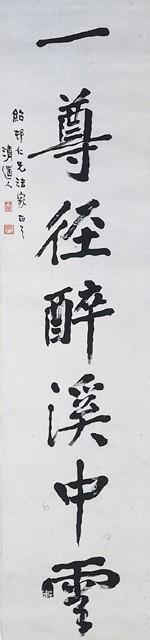 一尊径醉溪中雲
紹邨仁兄法家正之
清道人